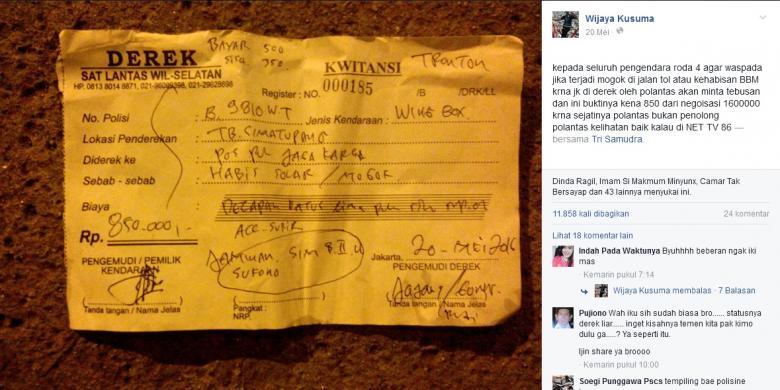 DEREK
SAT LANTAS WIL-SELATAN
BAYAR 500
SISA 350
KWITANSI
TRONTON
Register : NO. 000185 /B /DRK/LL
No. Polisi : B. 9810 WT Jenis Kendaraan : WING BOX
Lokasi Penderekan : TB. SIMATUPANG
Diderek ke : POS PJR JAGA KARSA
Sebab - sebab : HABIS SOLAR / MOGOK
Biaya :
Rp. 850.000,-
ACC-SUPIR
JAMINAN. SIM B.II.U
SUKONO
Jakarta, 20-MEI 2016
PENGEMUDI / PEMILIK KENDARAAN
PENGEMUDI DEREK
Tanda tangan / Nama Jelas
Pangkat :
NRP.
Tanda tangan / Nama Jelas
Wijaya Kusuma
20 Mei
kepada seluruh pengendara roda 4 agar waspada
jika terjadi mogok di jalan tol atau kehabisan BBM
krna jk di derek oleh polantas akan minta tebusan
dan ini buktinya kena 850 dari negoisasi 1600000
krna sejatinya polantas bukan penolong
polantas kelihatan baik kalau di NET TV 86 —
bersama Tri Samudra.
Dinda Ragil, Imam Si Makmum Minyunx, Camar Tak
Bersayap dan 43 lainnya menyukai ini.
11.858 kali dibagikan 24 komentar
Lihat 18 komentar lain
Indah Pada Waktunya Byuhhhh beberan ngak iki
mas
Kemarin pukul 7:14
Wijaya Kusuma membalas · 7 Balasan
Pujiono Wah iku sih sudah biasa bro...... statusnya
derek liar...... inget kisahnya temen kita pak kimo
dulu ga....? Ya seperti itu.
Ijin share ya broooo
Kemarin pukul 10:00
Soegi Punggawa Pscs templing bae polisine